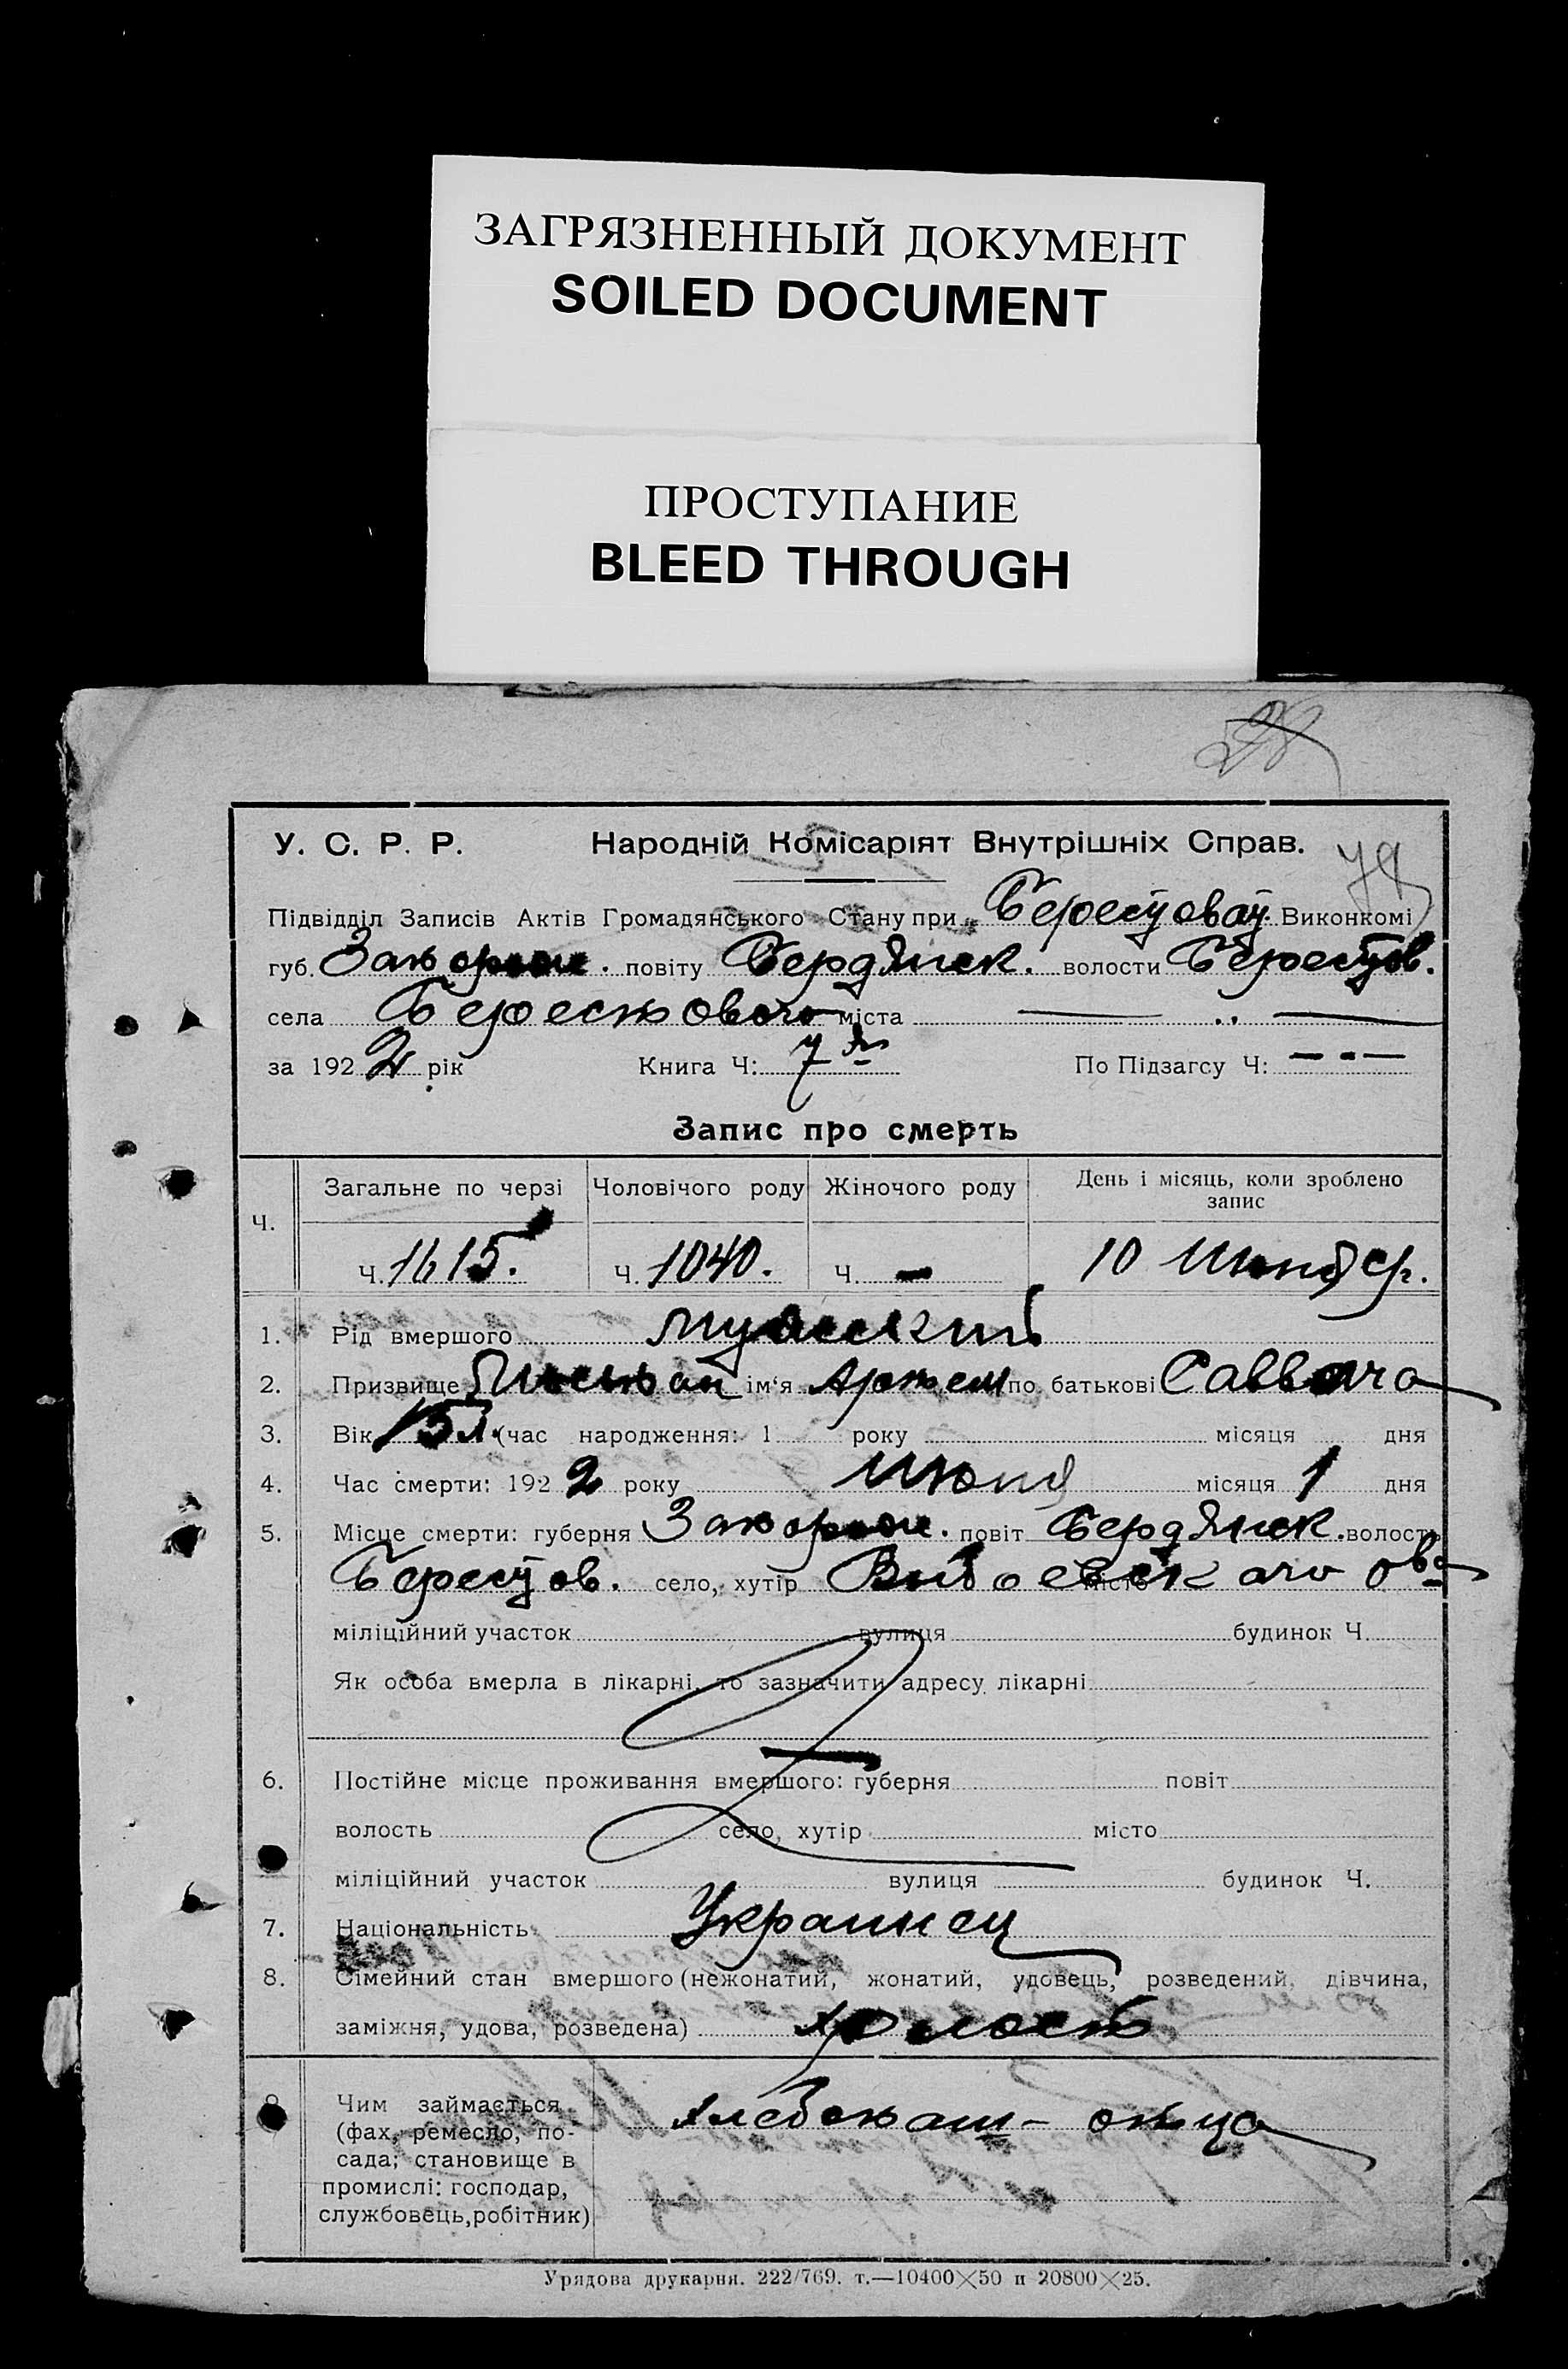 ЗАГРЯЗНЕННЫЙ ДОКУМЕНТ
SOILED DOCUMENT
ПРОСТУПАНИЕ
BLEED THROUGH
28
79
У. С. Р. Р. Народній Комісаріят Внутрішніх Справ.
Підвідділ Записів Актів Громадянського Стану при Берестовом Виконкомі
губ. Запорож. повіту Бердянск. волости Берестов.
села Берестового міста —
за 1922 рік Книга Ч: 7я По Підзагсу Ч: — - —
Запис про смерть
Ч. Загальне по черзі Чоловічого роду Жіночого роду День і місяць, коли зроблено запис
Ч. 1615. Ч. 1040. Ч. - 10
1. Рід вмершого мужский
2. Призвище ім‘я Артем по батькові Саввича
3. Вік 15 л. (час народження: 1 року місяця дня
4. Час смерти: 1922 року Июня місяця 1 дня
5. Місце смерти: губерня Запорож. повіт Бердянск. волость
Берестов. село, хутір місто
міліційний участок вулиця будинок Ч.
Як особа вмерла в лікарні, то зазначити адресу лікарні
6. Постійне місце проживання вмершого: губерня повіт
волость село, хутір місто
міліційний участок вулиця будинок Ч.
7. Національність Украинец
8. Сімейний стан вмершого (нежонатий, жонатий, удовець, розведений, дівчина,
заміжня, удова, розведена) холост
9 Чим займається
(фах, ремесло, по-
сада; становище в
промислі: господар,
службовець, робітник)
хлебопаш- отца
Урядова друкарня. 222/769. т.—10400×50 п 20800×25.